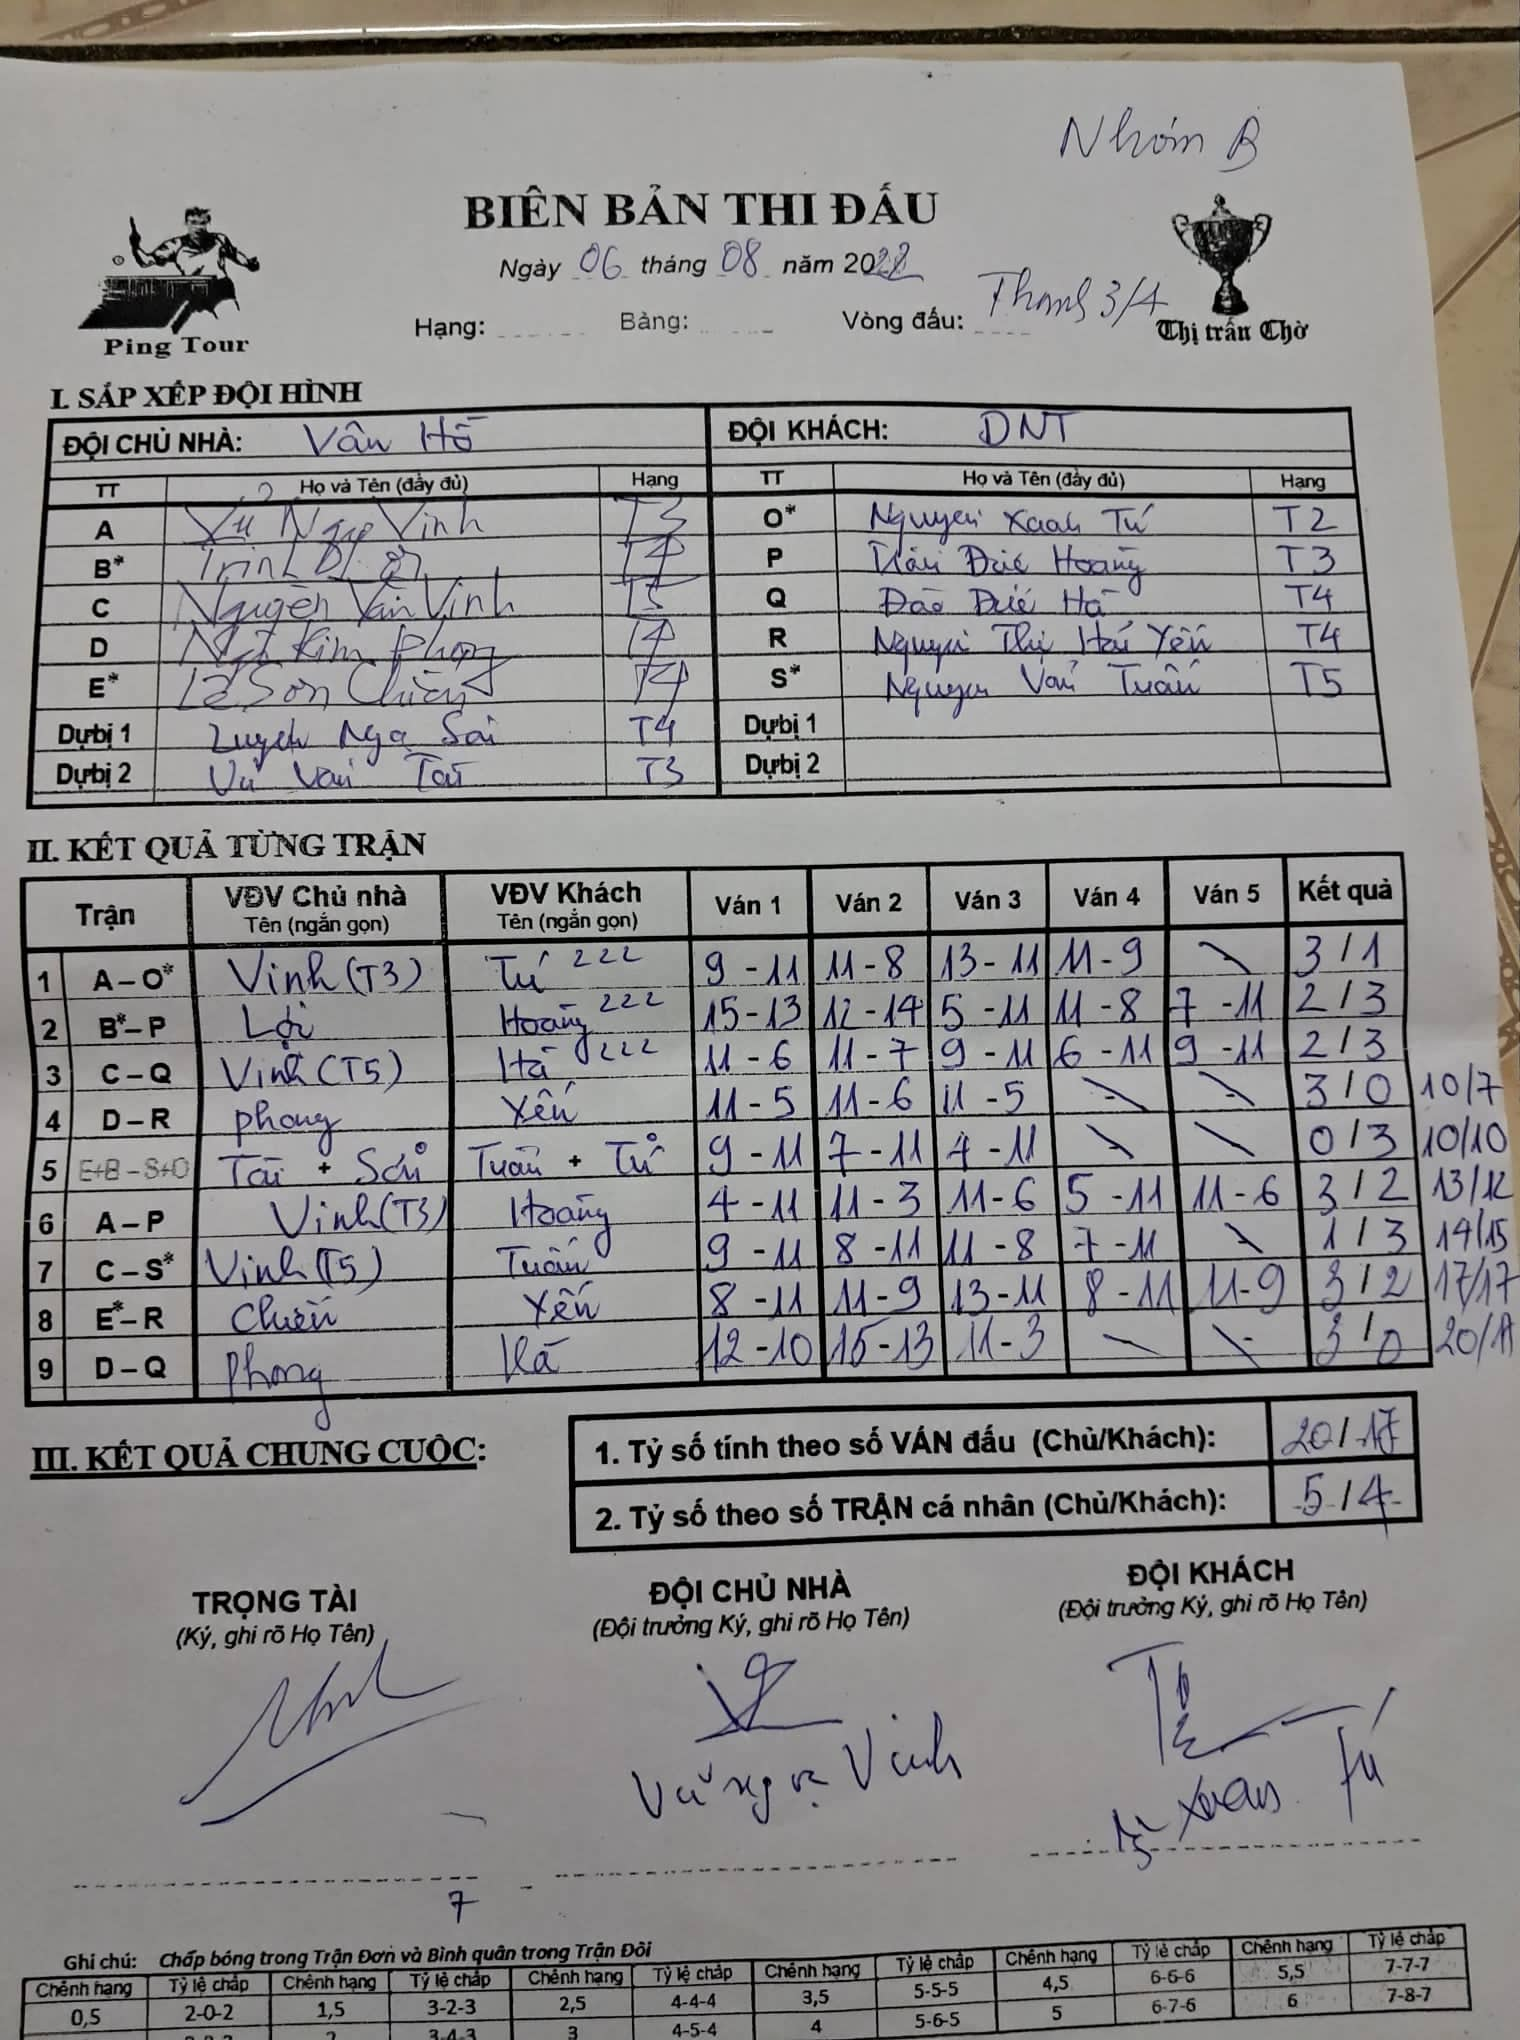 Nhóm B
BIÊN BẢN THI ĐẤU
Ngày 06 tháng 08 năm 2022
Hạng: Bảng: Vòng đấu: Tranh 3/4
Ping Tour
Thị trấn Chờ
I. SẮP XẾP ĐỘI HÌNH
ĐỘI CHỦ NHÀ: Vân Hồ ĐỘI KHÁCH: DNT
TT Họ và Tên (đầy đủ) Hạng TT Họ và Tên (đầy đủ) Hạng
A Vũ Ngọc Vinh T3 O* Nguyễn Xuân Tú T2
B* Trịnh T4 P Trần Đức Hoàng T3
C Nguyễn Văn Vinh T5 Q Đào Đức Hà T4
D Ngô Kim Phong T4 R Nguyễn Thị Hải Yến T4
E* Lê Sơn Chiến T4 S* Nguyễn Văn Tuấn T5
Dựbị 1 Nga Sơn T4 Dựbị 1
Dựbị 2 Vũ Văn Tài T3 Dựbị 2
II. KẾT QUẢ TỪNG TRẬN
Trận VĐV Chủ nhà VĐV Khách Ván 1 Ván 2 Ván 3 Ván 4 Ván 5 Kết quả
Tên (ngắn gọn) Tên (ngắn gọn)
1 A – O* Vinh (T3) Tú 222 9 - 11 11 - 8 13 - 11 11 - 9 \ 3 / 1
2 B* – P Lợi Hoàng 222 15 - 13 12 - 14 5 - 11 11 - 8 7 - 11 2 / 3
3 C – Q Vinh (T5) Hà 222 11 - 6 11 - 7 9 - 11 6 - 11 9 - 11 2 / 3
4 D – R Phong Yến 11 - 5 11 - 6 11 - 5 \ \ 3 / 0 10/7
5 E+B – S+O Tài + Sơn Tuấn + Tú 9 - 11 7 - 11 7 - 11 \ \ 0 / 3 10/10
6 A – P Vinh (T3) Hoàng 4 - 11 11 - 3 11 - 6 5 - 11 11 - 6 3 / 2 13/12
7 C – S* Vinh (T5) Tuấn 9 - 11 8 - 11 11 - 8 7 - 11 \ 1 / 3 14/15
8 E* – R Chiến Yến 8 - 11 11 - 9 13 - 11 8 - 11 11 - 9 3 / 2 17/17
9 D – Q Phong Hà 12 - 10 15 - 13 11 - 3 \ \ 3 / 0 20/17
III. KẾT QUẢ CHUNG CUỘC:
1. Tỷ số tính theo số VÁN đấu (Chủ/Khách): 20 / 17
2. Tỷ số theo số TRẬN cá nhân (Chủ/Khách): 5 / 4
TRỌNG TÀI ĐỘI CHỦ NHÀ ĐỘI KHÁCH
(Ký, ghi rõ Họ Tên) (Đội trưởng Ký, ghi rõ Họ Tên) (Đội trưởng Ký, ghi rõ Họ Tên)
Vũ Ngọc Vinh
Xuân Tú
7
Ghi chú: Chấp bóng trong Trận Đơn và Bình quân trong Trận Đôi
Chênh hạng Tỷ lệ chấp Chênh hạng Tỷ lệ chấp Chênh hạng Tỷ lệ chấp Chênh hạng Tỷ lệ chấp Chênh hạng Tỷ lệ chấp Chênh hạng Tỷ lệ chấp
0,5 2-0-2 1,5 3-2-3 2,5 4-4-4 3,5 5-5-5 4,5 6-6-6 5,5 7-7-7
2 3-4-3 3 4-5-4 4 5-6-5 5 6-7-6 6 7-8-7